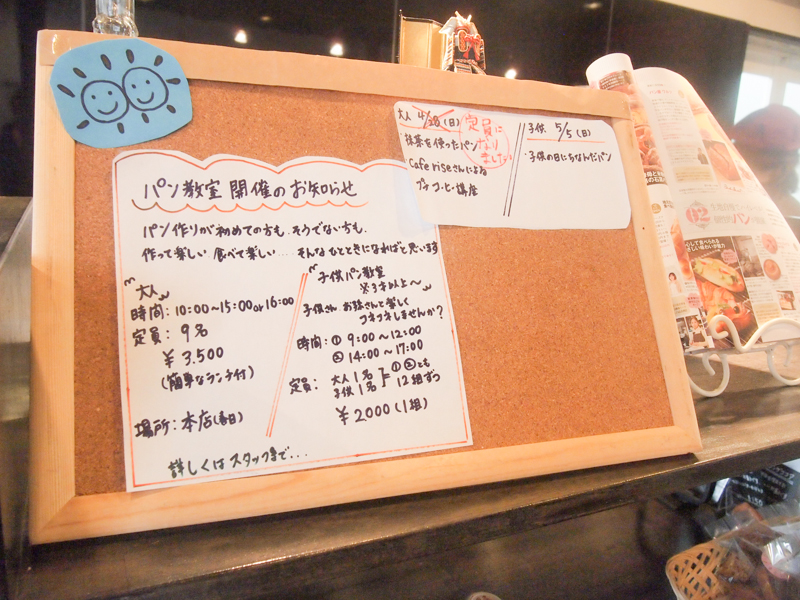 パン教室 開催のお知らせ
パン作りが初めての方も、そうでない方も、
作って楽しい 食べて楽しい....そんなひとときになればと思います
大人
時間:10:00〜15:00 or 16:00
定員:9名
¥3.500
(簡単なランチ付)
場所:本店(春日)
子供パン教室
※3才以上〜
子供さん お母さんと楽しく
コネコネしませんか?
時間:① 9:00〜12:00
② 14:00〜17:00
定員:大人1名
子供1名
=①②とも
12組ずつ
¥2000(1組)
詳しくはスタッフまで...
大人 4/28(日)
定員に
なり
ました
・抹茶を使ったパン
・Cafe riseさんによる
プチコーヒー講座
子供 5/5(日)
・子供の日にちなんだパン
02
パン